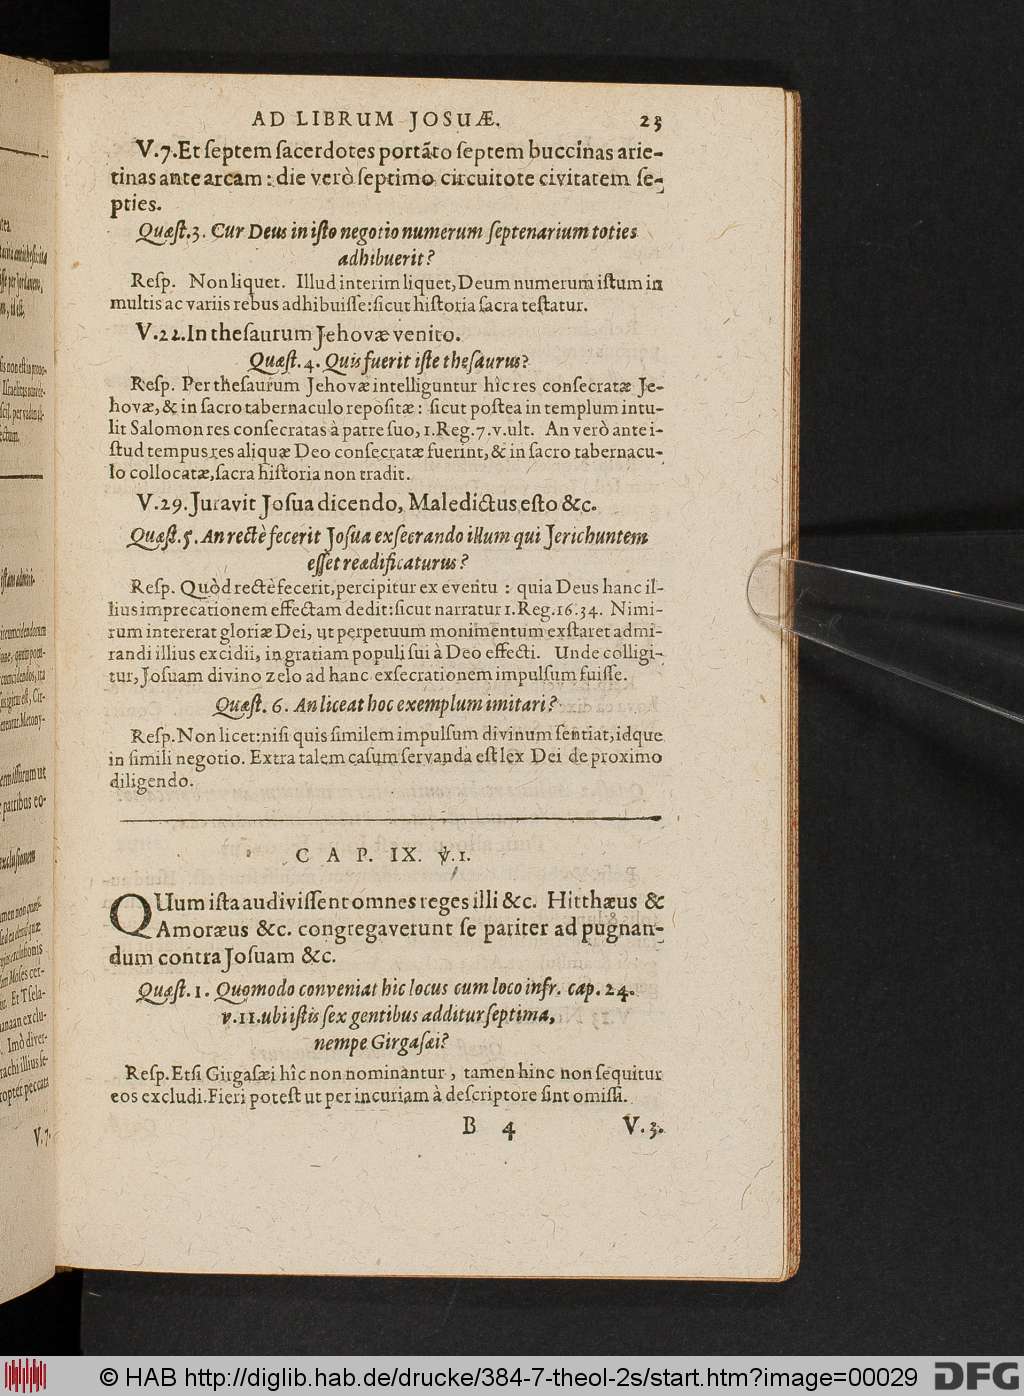 AD LIBRUM JOSUÆ. 23
V.7. Et septem sacerdotes portãto septem buccinas arie-
tinas ante arcam: die verò septimo circuitote civitatem se-
pties.
Quæst.3. Cur Deus in isto negotio numerum septenarium toties
adhibuerit?
Resp. Non liquet. Illud interim liquet, Deum numerum istum in
multis ac variis rebus adhibuisse: sicut historia sacra testatur.
V.22. In thesaurum Jehovæ venito.
Quæst. 4. Quis fuerit iste thesaurus?
Resp. Per thesaurum Jehovæ intelliguntur hîc res consecratæ Je-
hovæ, & in sacro tabernaculo repositæ: sicut postea in templum intu-
lit Salomon res consecratas à patre suo, 1. Reg. 7. v. ult. An verò ante i-
stud tempus res aliquæ Deo consecratæ fuerint, & in sacro tabernacu-
lo collocatæ, sacra historia non tradit.
V.29. Juravit Josua dicendo, Maledictus esto &c.
Quæst.5. An rectè fecerit Josua exsecrando illum qui Jerichuntem
esset reædificaturus?
Resp. Quòd rectè fecerit, percipitur ex eventu: quia Deus hanc il-
lius imprecationem effectam dedit: sicut narratur 1. Reg. 16. 34. Nimi-
rum intererat gloriæ Dei, ut perpetuum monimentum exstaret admi-
randi illius excidii, in gratiam populi sui à Deo effecti. Unde colligi-
tur, Josuam divino zelo ad hanc exsecrationem impulsum fuisse.
Quæst. 6. An liceat hoc exemplum imitari?
Resp. Non licet: nisi quis similem impulsum divinum sentiat, idque
in simili negotio. Extra talem casum servanda est lex Dei de proximo
diligendo.
CAP. IX. v. 1.
QUum ista audivissent omnes reges illi &c. Hitthæus &
Amoræus &c. congregaverunt se pariter ad pugnan-
dum contra Josuam &c.
Quæst. 1. Quomodo conveniat hic locus cum loco infr. cap. 24.
v. 11. ubi istis sex gentibus additur septima,
nempe Girgasæi?
Resp. Etsi Girgasæi hîc non nominantur, tamen hinc non sequitur
eos excludi. Fieri potest ut per incuriam à descriptore sint omissi.
B 4 V. 3.
© HAB http://diglib.hab.de/drucke/384-7-theol-2s/start.htm?image=00029
DFG